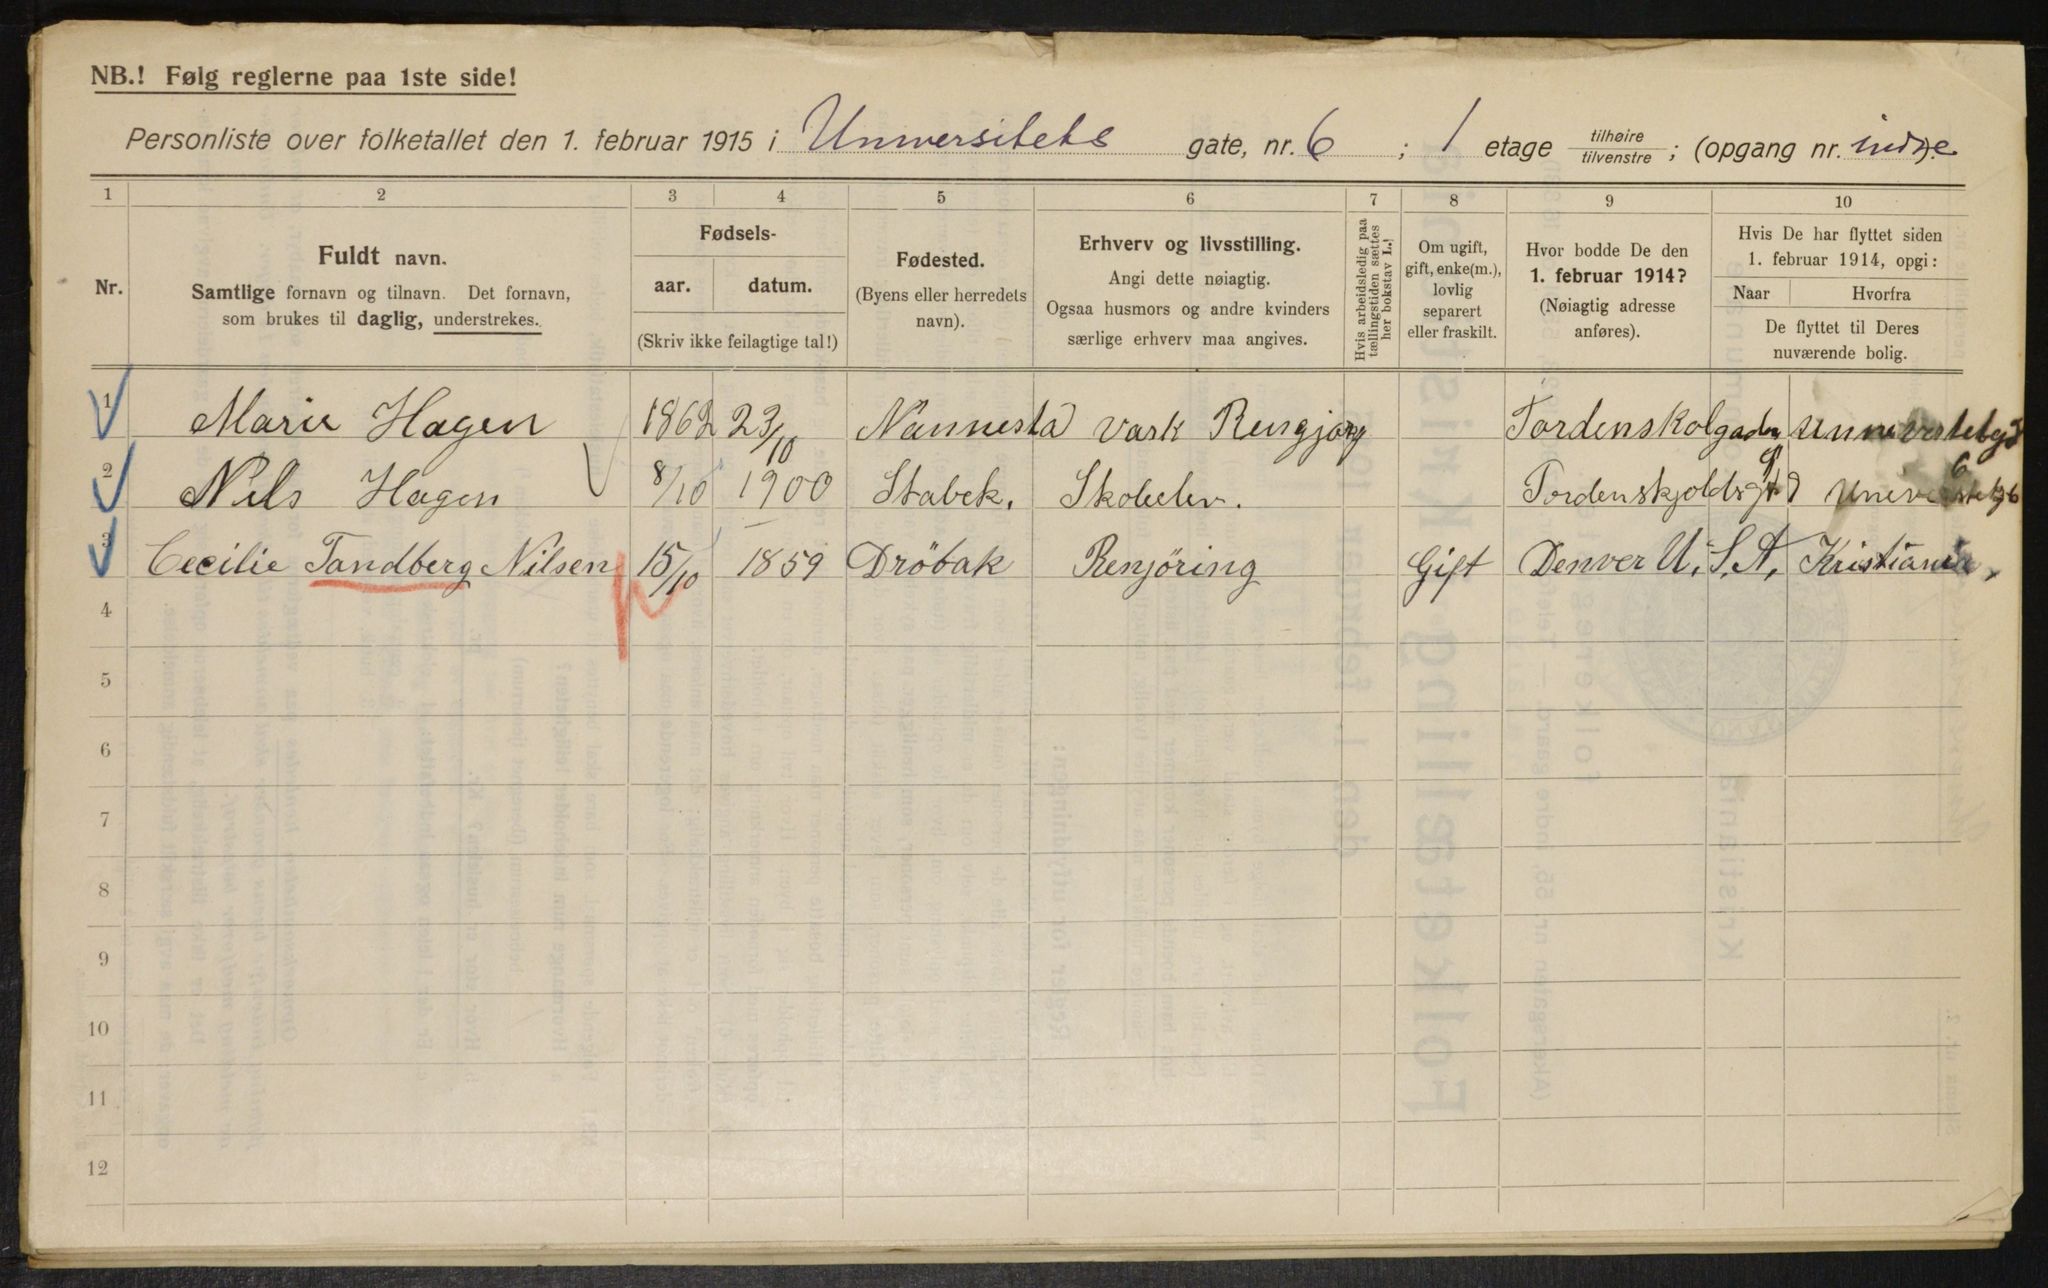 NB.! Følg reglerne paa 1ste side!
Personliste over folketallet den 1. februar 1915 i Universitets gate, nr. 6 ; 1 etage tilhøire / tilvenstre ; (opgang nr. indre).
1 2 3 4 5 6 7 8 9 10
Nr.
Fuldt navn.
Samtlige fornavn og tilnavn. Det fornavn,
som brukes til daglig, understrekes.
Fødsels-
aar. datum.
(Skriv ikke feilagtige tal!)
Fødested.
(Byens eller herredets
navn).
Erhverv og livsstilling.
Angi dette nøiagtig.
Ogsaa husmors og andre kvinders
særlige erhverv maa angives.
Hvis arbeidsledig paa
tællingstiden sættes
her bokstav L.!
Om ugift,
gift, enke(m.),
lovlig
separert
eller fraskilt.
Hvor bodde De den
1. februar 1914?
(Nøiagtig adresse
anføres).
Hvis De har flyttet siden
1. februar 1914, opgi:
Naar Hvorfra
De flyttet til Deres
nuværende bolig.
1 Marie Hagen 1862 23/10 Nannesta vask Rengjørg Tordenskolgaden
2 Nils Hagen 8/10 1900 Stabek. Skoleelev. Tordenskjoldsgt 9
3 Cecilie Tandberg Nilsen 15/10 1859 Dröbak Renjöring Gift Denver U. S. A. Kristiania,
4
5
6
7
8
9
10
11
12